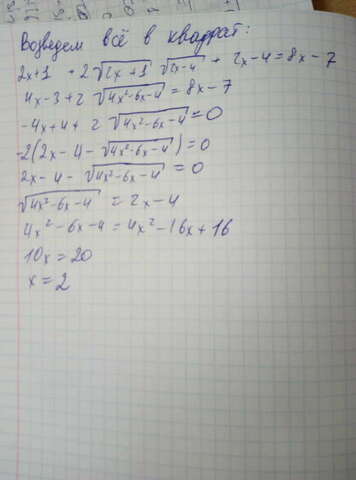 Возведем всё в квадрат:
2x+1 + 2√(2x+1) √(2x-4) + 2x-4 = 8x-7
4x-3+2 √(4x²-6x-4) = 8x-7
-4x+4+ 2 √(4x²-6x-4) = 0
-2(2x-4-√(4x²-6x-4)) = 0
2x-4-√(4x²-6x-4) = 0
√(4x²-6x-4) = 2x-4
4x²-6x-4 = 4x²-16x+16
10x = 20
x = 2